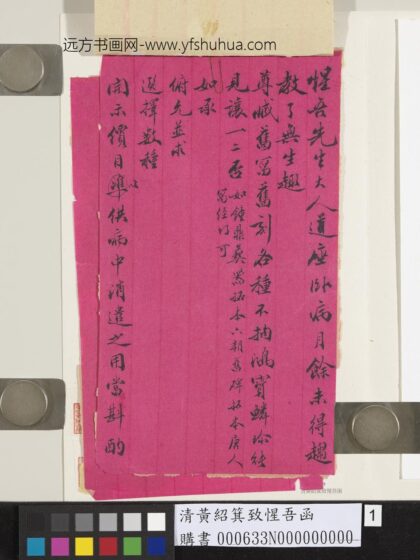 远方书画网-www.yfshuhua.com
惺吾先生大人道座臥病月餘未得趨
教了無生趣
尊臧舊寫舊刻各種不拘鴻寶鱗爪能
見讓一二否如鐘鼎彝器拓本六朝舊碑拓本唐人
寫經皆可
如承
俯允並求
選擇數種
開示價目以供病中消遣之用當斟酌
清黃紹箕致惺吾函
購書 000633N000000000
1